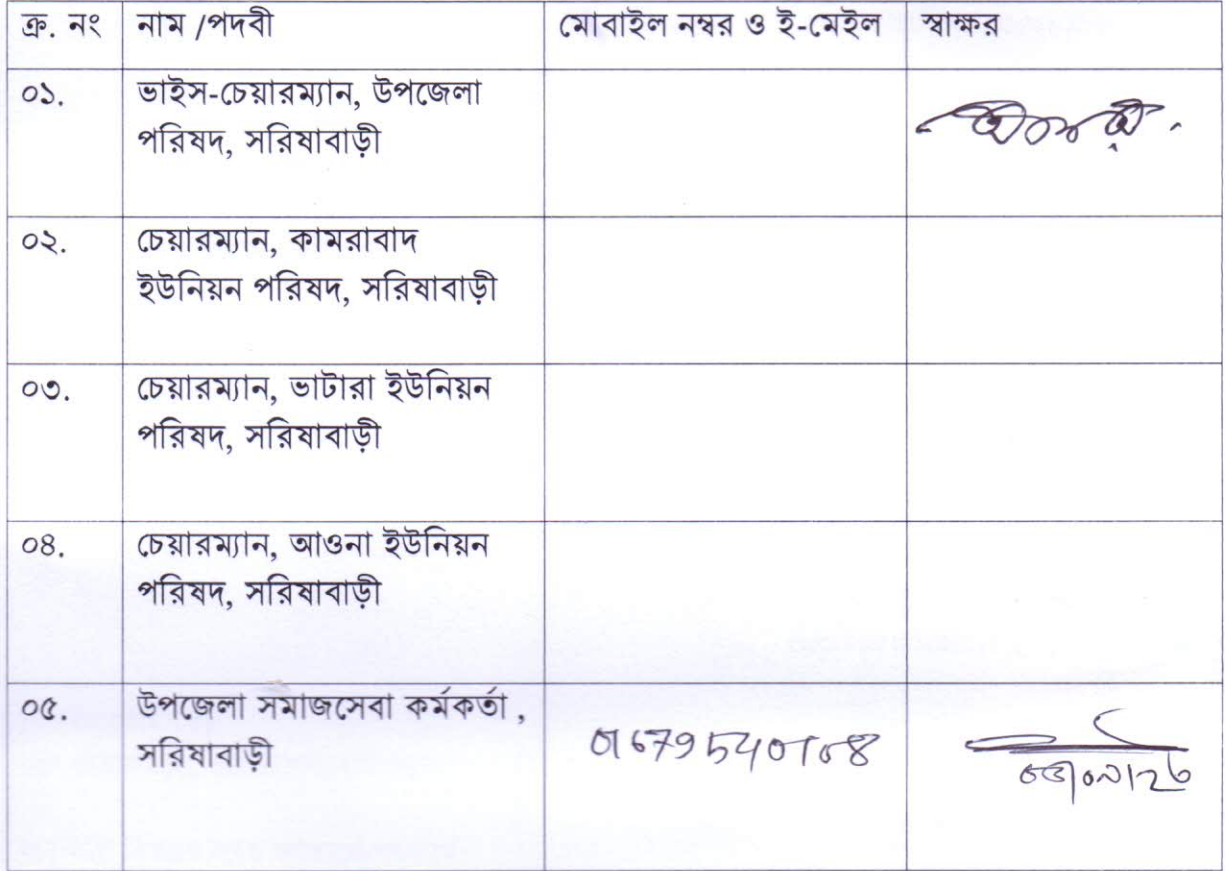 ক্র. নং নাম /পদবী মোবাইল নম্বর ও ই-মেইল স্বাক্ষর
০১. ভাইস-চেয়ারম্যান, উপজেলা
পরিষদ, সরিষাবাড়ী
০২. চেয়ারম্যান, কামরাবাদ
ইউনিয়ন পরিষদ, সরিষাবাড়ী
০৩. চেয়ারম্যান, ভাটারা ইউনিয়ন
পরিষদ, সরিষাবাড়ী
০৪. চেয়ারম্যান, আওনা ইউনিয়ন
পরিষদ, সরিষাবাড়ী
০৫. উপজেলা সমাজসেবা কর্মকর্তা ,
সরিষাবাড়ী 01679540108